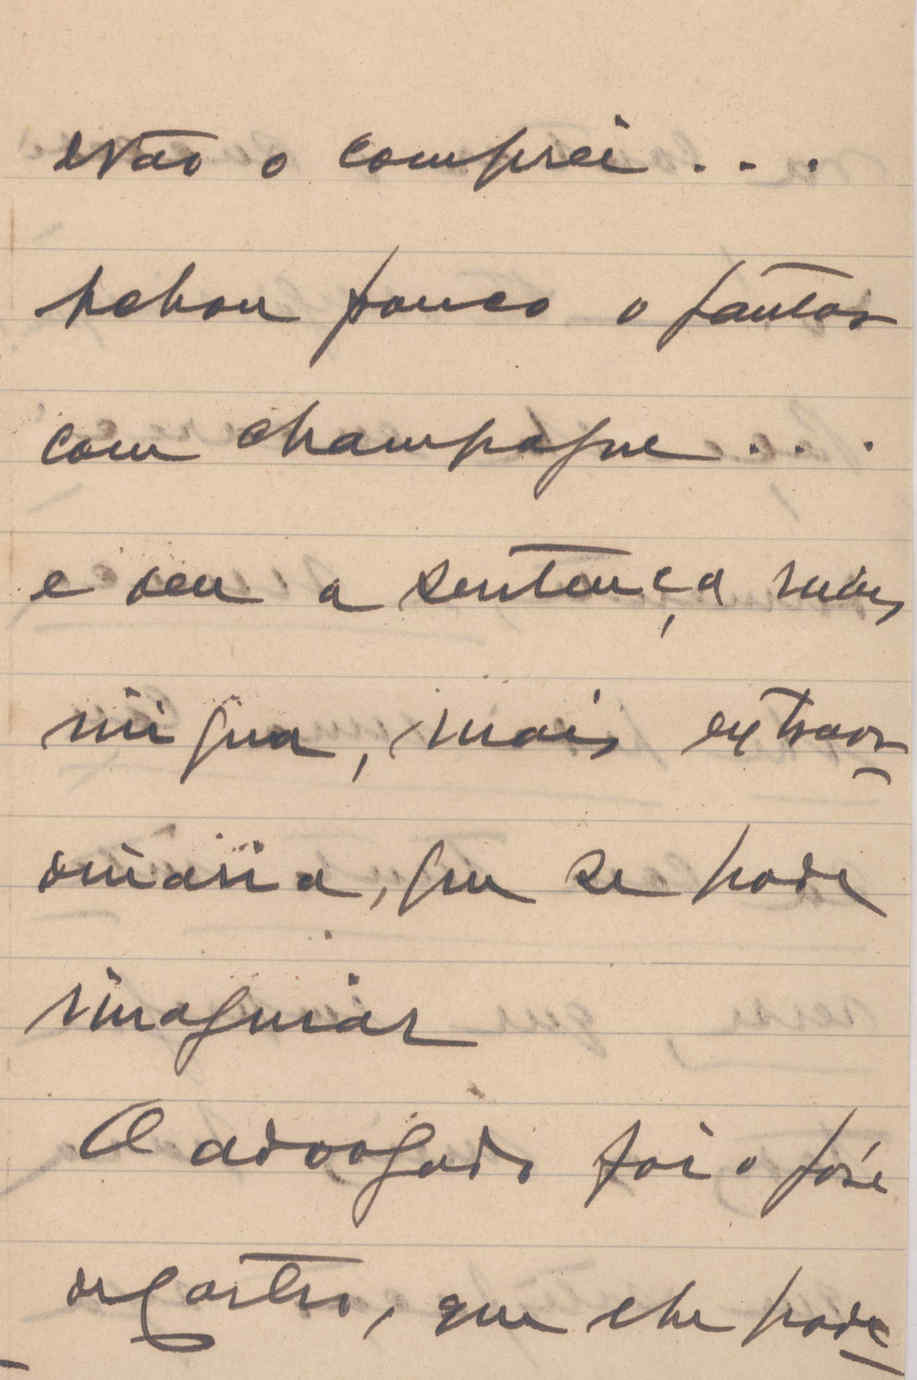 Não o comprei...
Achou pouco o jantar
com champagne...
e deu a sentença mais
iniqua, mais extraor-
dinaria, que se pode
imaginar
O advogado foi o José
de Castro, que lhe pode